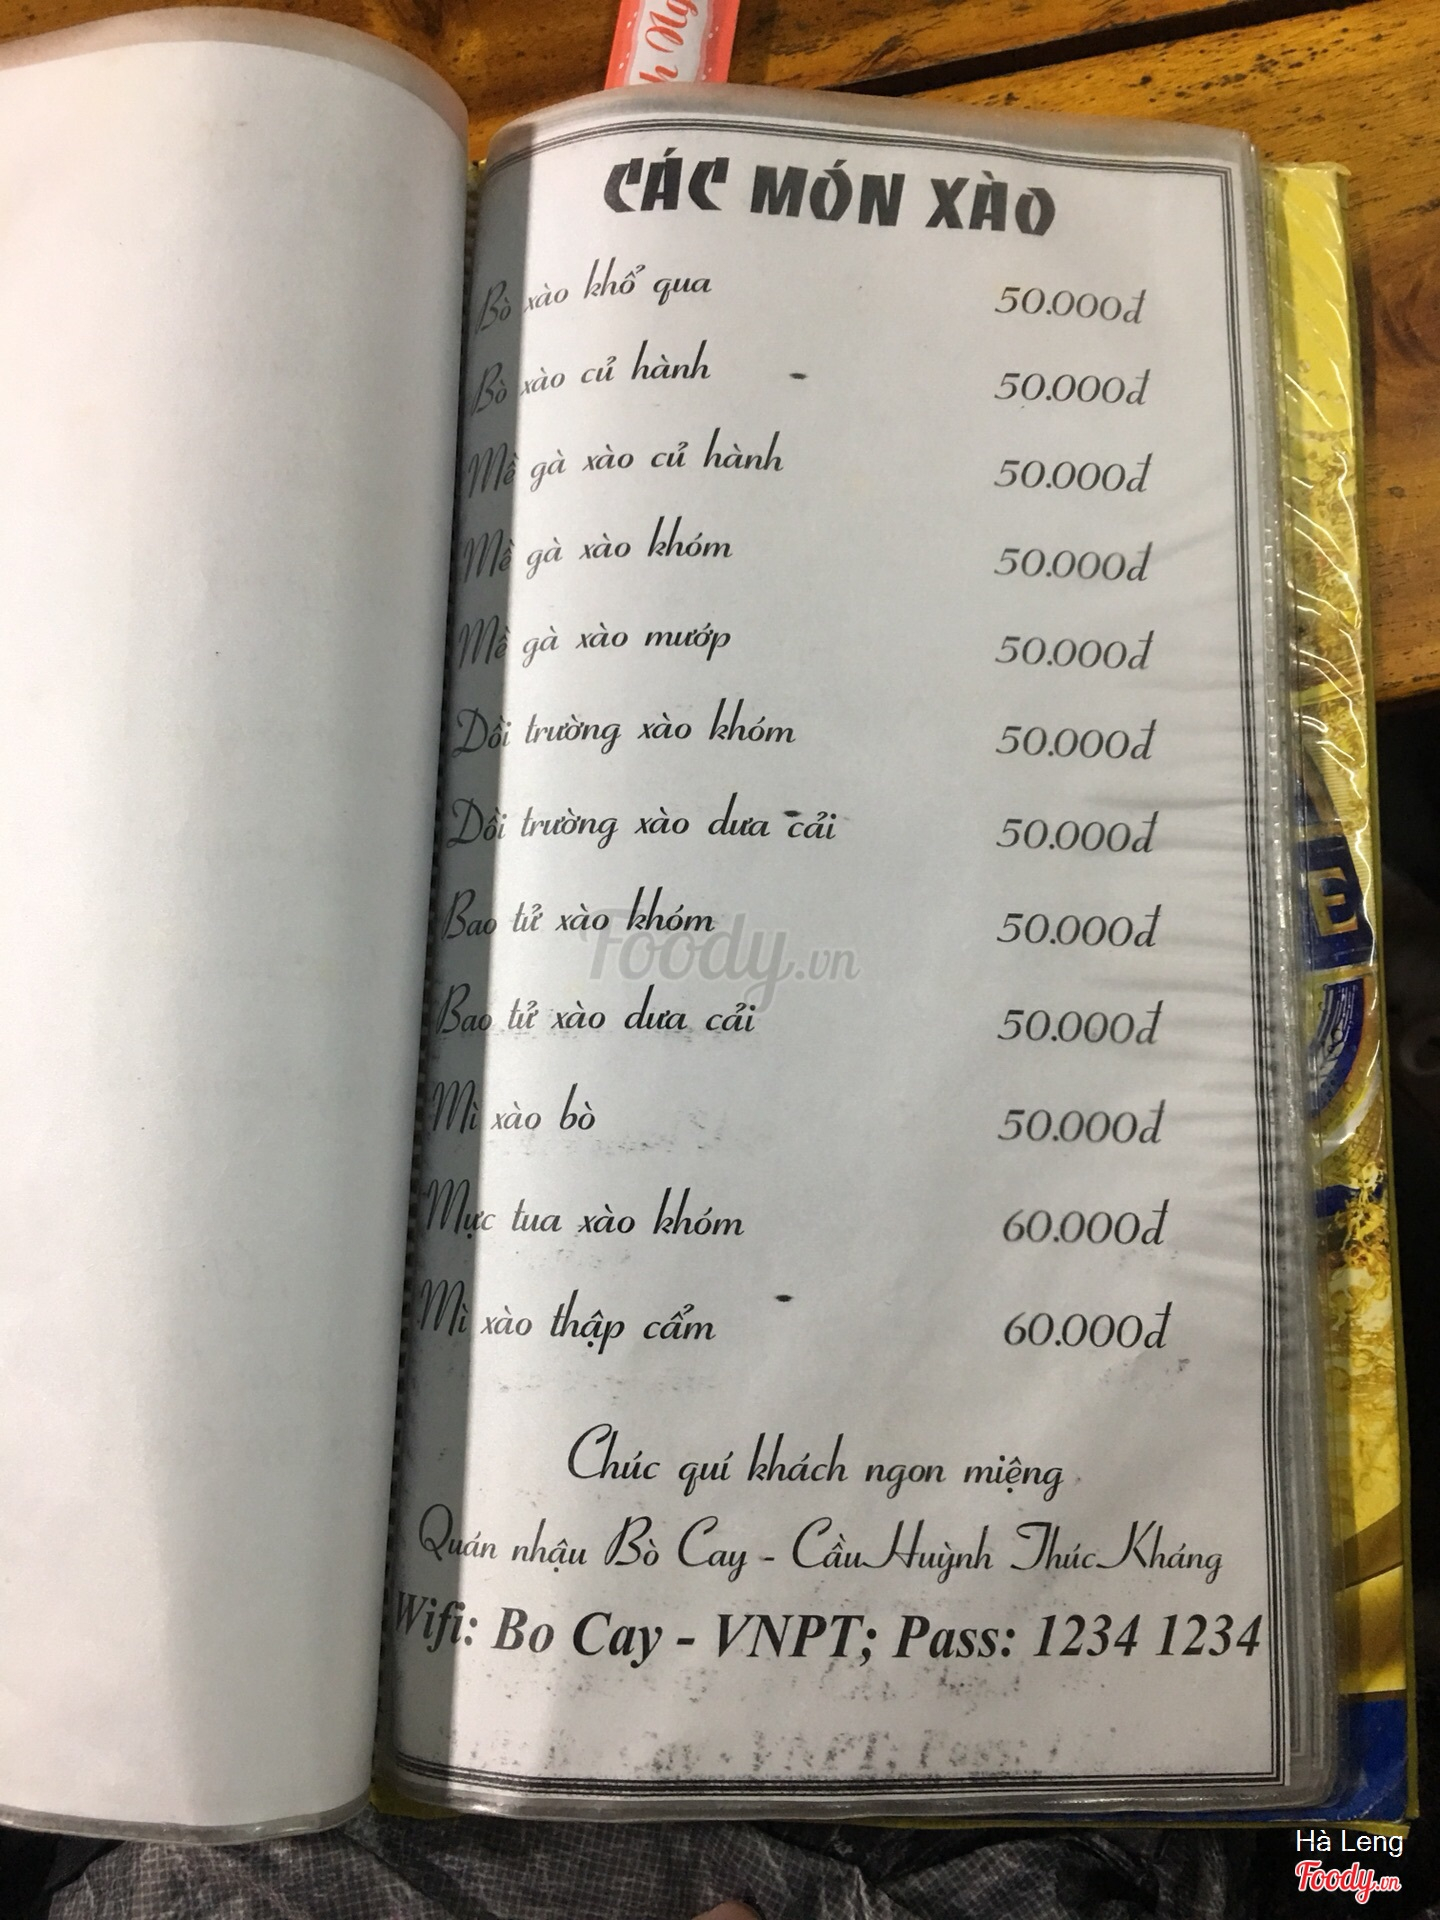 h Ng
CÁC MÓN XÀO
Bò xào khổ qua 50.000đ
Bò xào củ hành 50.000đ
Mề gà xào củ hành 50.000đ
Mề gà xào khóm 50.000đ
Mề gà xào mướp 50.000đ
Dồi trường xào khóm 50.000đ
Dồi trường xào dưa cải 50.000đ
Bao tử xào khóm 50.000đ
Foody.vn
Bao tử xào dưa cải 50.000đ
Mì xào bò 50.000đ
Mực tua xào khóm 60.000đ
Mì xào thập cẩm 60.000đ
Chúc quí khách ngon miệng
Quán nhậu Bò Cay - Cầu Huỳnh Thúc Kháng
Wifi: Bo Cay - VNPT; Pass: 1234 1234
E
Hà Leng
Foody.vn